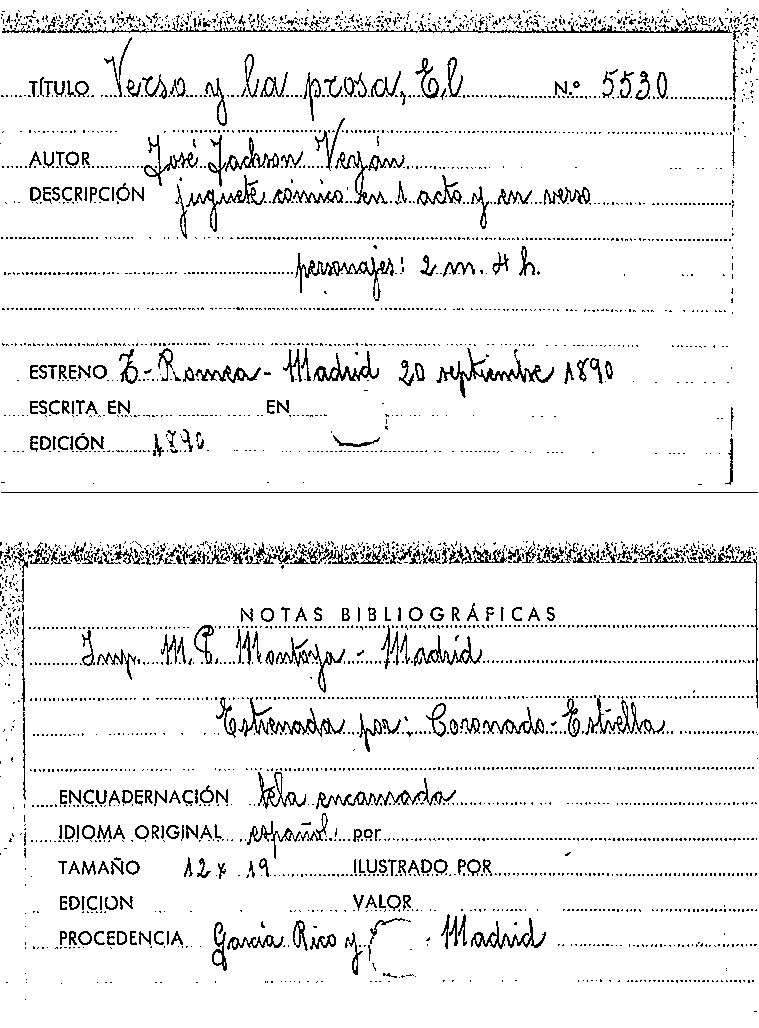 TÍTULO Verso y la prosa, El N.º 5530
AUTOR José Jackson Veyán
DESCRIPCIÓN juguete cómico en 1 acto y en verso
personajes: 2 m. 4 h.
ESTRENO T-Romea-Madrid 20 septiembre 1890
ESCRITA EN EN
EDICIÓN 1890
NOTAS BIBLIOGRÁFICAS
Imp. M. P. Montoya - Madrid
Estrenada por: Coronado-Estrella
ENCUADERNACIÓN tela encarnada
IDIOMA ORIGINAL español por
TAMAÑO 12 x 19 ILUSTRADO POR
EDICION VALOR
PROCEDENCIA García Rico y - Madrid